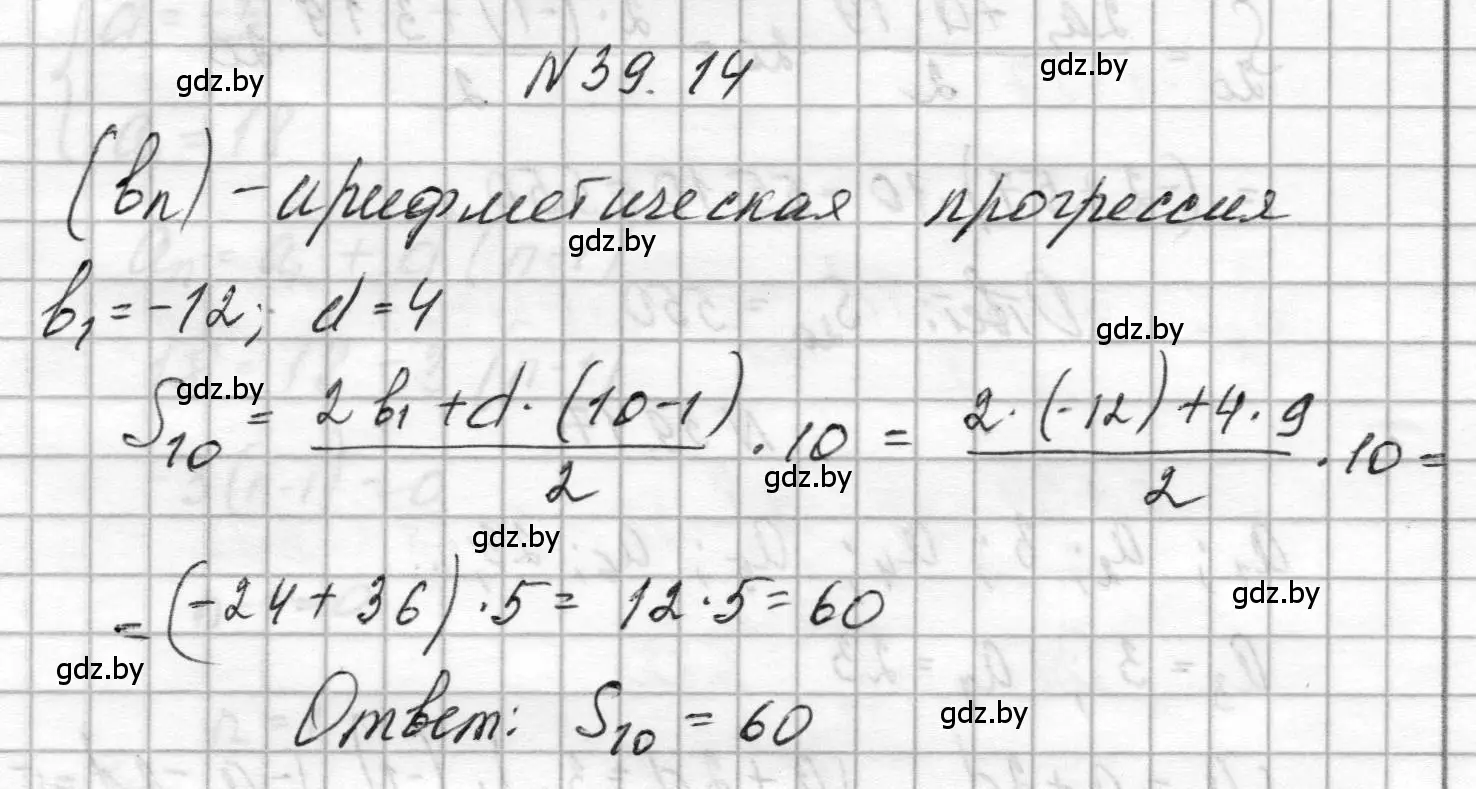 gdz.by N 39.14 gdz.by
(bn) - арифметическая прогрессия
gdz.by
b₁ = -12; d = 4
gdz.by
gdz.by
S₁₀ = (2b₁ + d · (10-1))/2 · 10 = (2 · (-12) + 4 · 9)/2 · 10 =
gdz.by
gdz.by
= (-24 + 36) · 5 = 12 · 5 = 60
gdz.by
gdz.by
Ответ: S₁₀ = 60
gdz.by